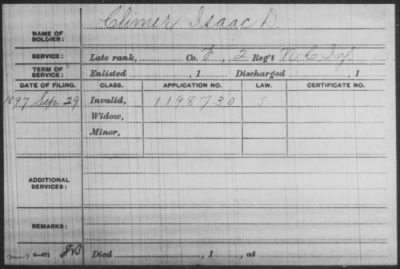 NAME OF SOLDIER: Climer Isaac D.
SERVICE: Late rank, Co. F, 2 Reg't N. C. Inf
TERM OF SERVICE: Enlisted , 1 Discharged , 1
DATE OF FILING. CLASS. APPLICATION NO. LAW. CERTIFICATE NO.
1897 Sep. 29 Invalid, 1198730 J
Widow,
Minor,
ADDITIONAL SERVICES:
REMARKS:
Died , 1 , at